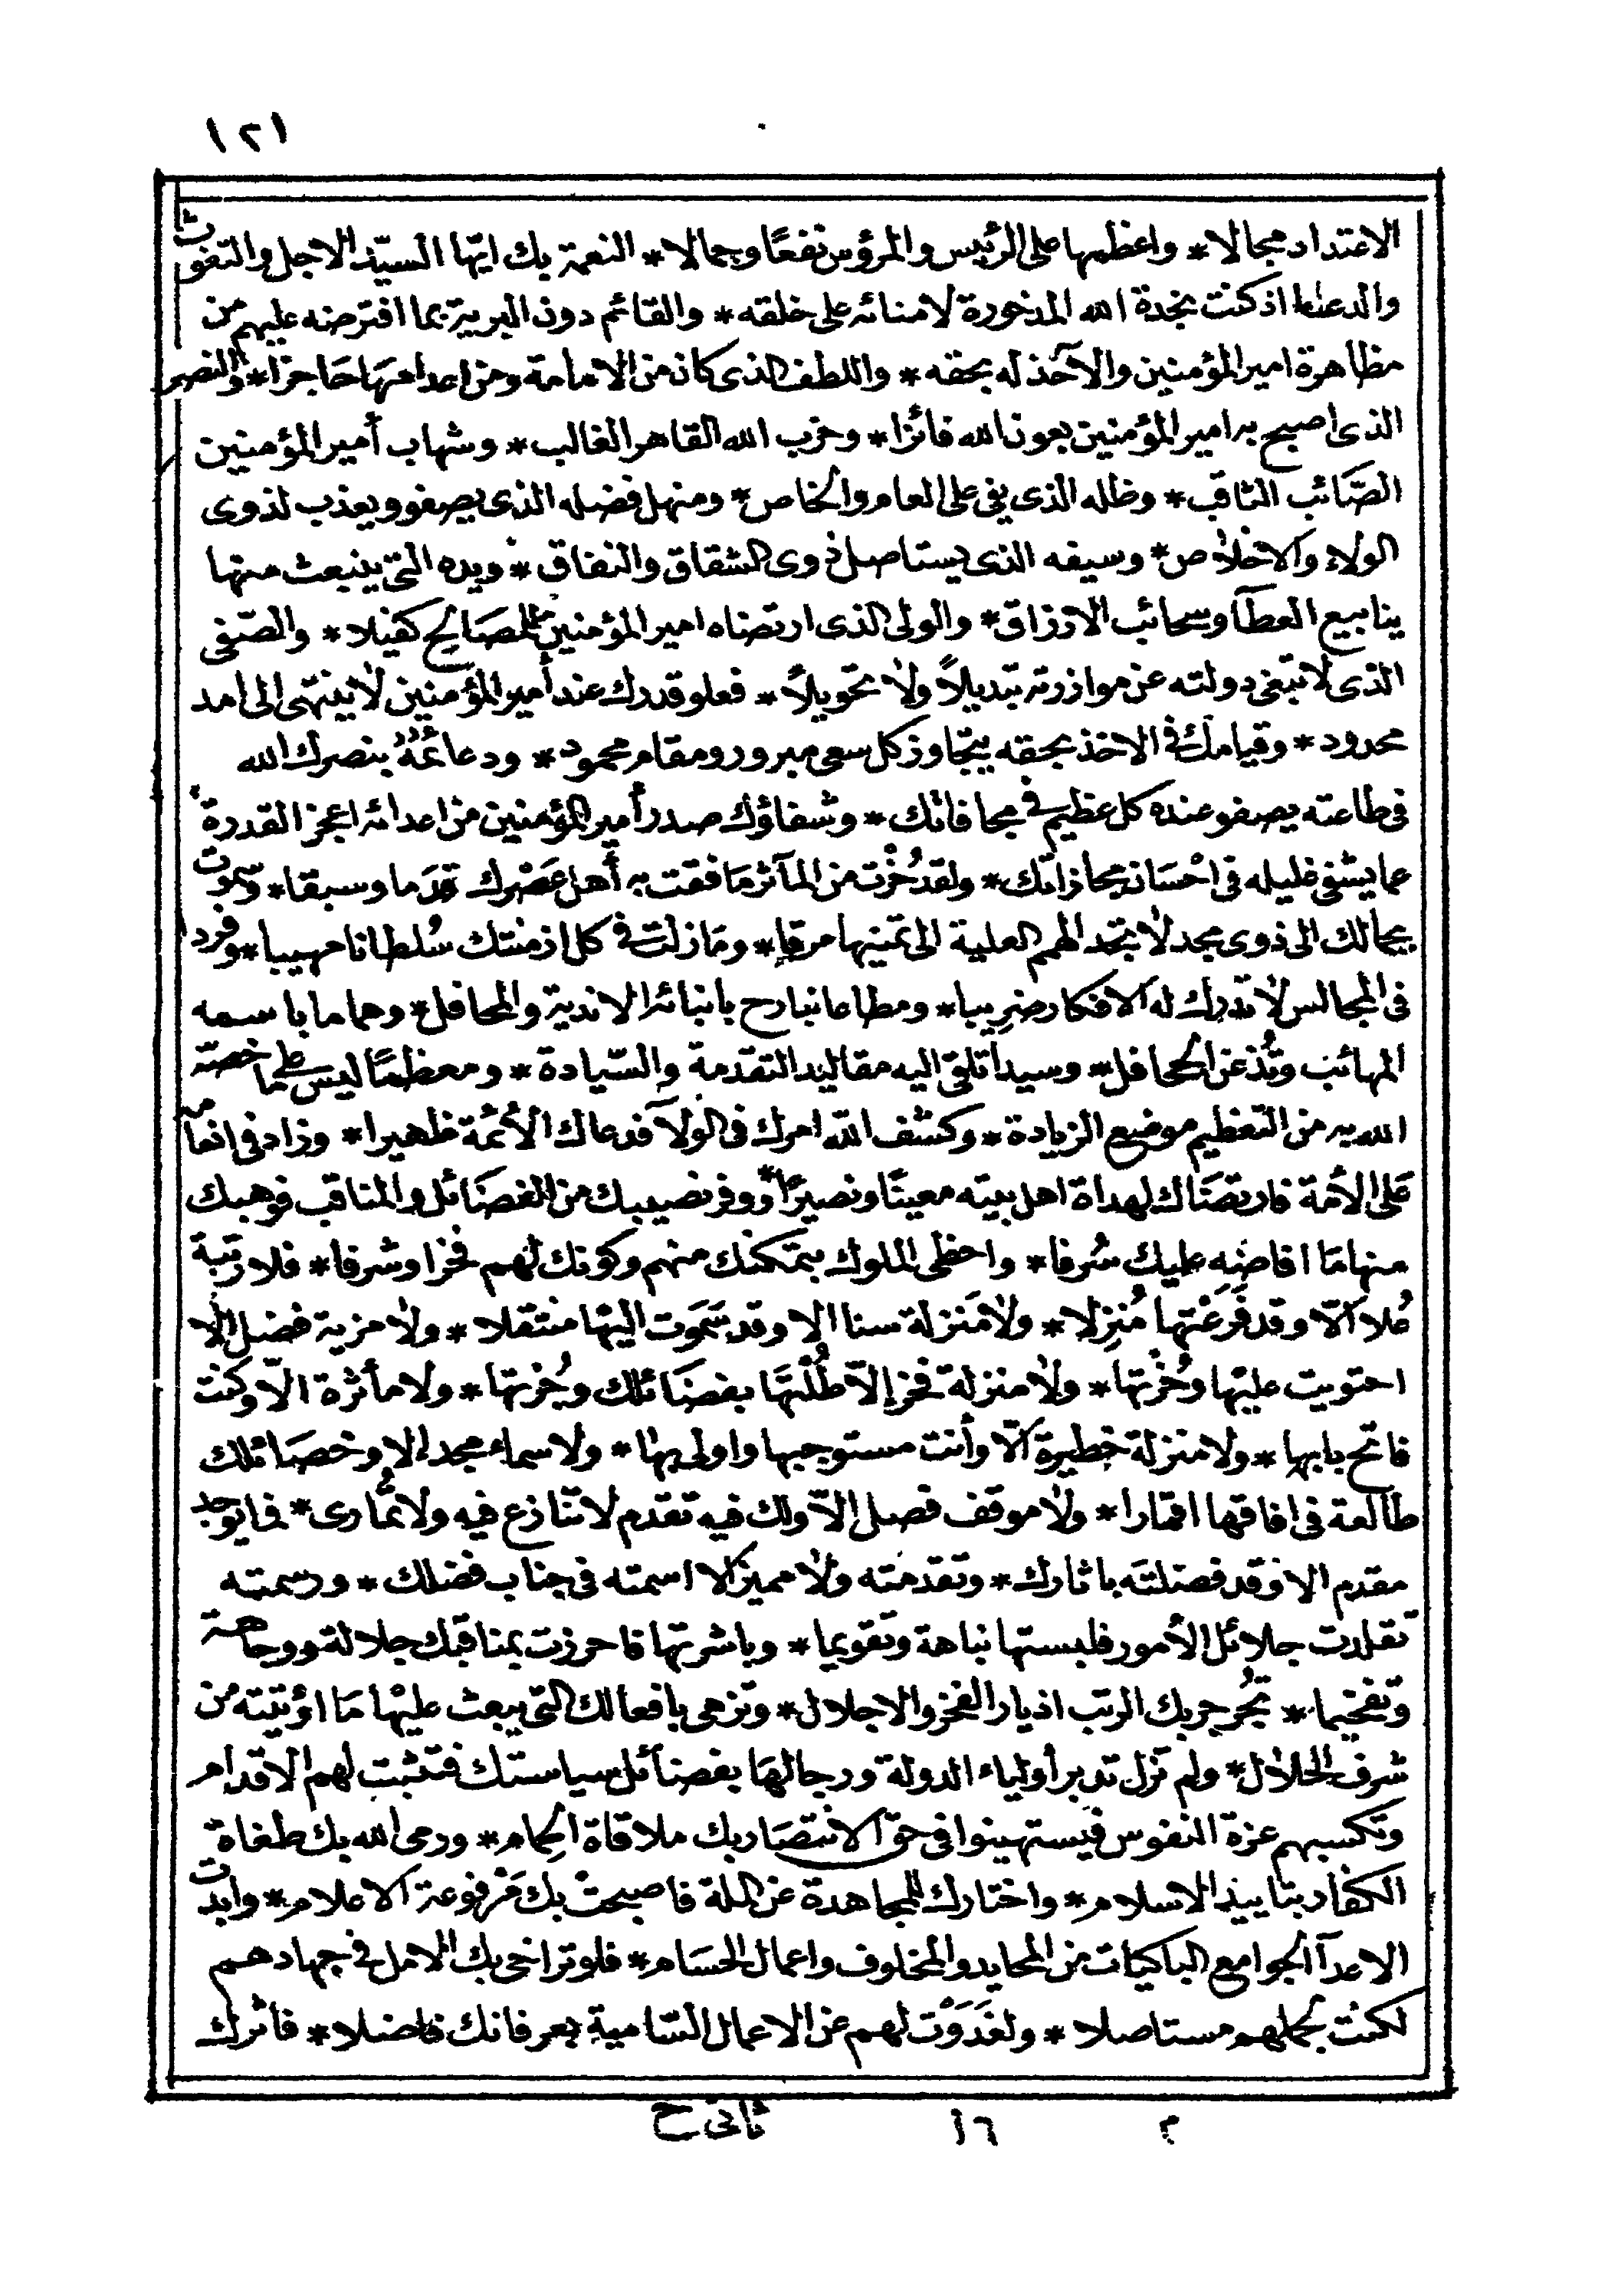 ١٢١
الاعتداد مجالا * واعظمها على الرئيس والمرؤس نفعًا وجمالا * النعمة بك ايّها السيّد الاجل والتغوث
والدعاء اذ كنت نجدة الله المذخورة لامنائه على خلقه * والقائم دون البرية بما افترضه عليهم من
مظاهرة امير المؤمنين والآخذ له بحقه * واللطف الذى كان من الامامة ومن اعدامها حَاجزا * والنصر
الذى اصبح به امير المؤمنين بعون الله فائزا * وحزب الله القاهر الغالب * وشهاب أمير المؤمنين
الصّائب الثاقب * وظله الذى يفى على العام والخاص * ومنهل فضله الذى يصفو ويعذب لذوى
الولاء والاخلاص * وسيفه الذى يستاصل ذوى الشقاق والنفاق * ويده التى ينبعث منها
ينابيع العطآ وسحائب الارزاق * والولى الذى ارتضاه امير المؤمنين للمصَالح كفيلا * والصّفى
الذى لا تبغى دولته عن موازرته تبديلاً ولا تحويلاً * فعلو قدرك عند أمير المؤمنين لا ينتهى الى امد
محدود * وقيامك فى الاخذ بحقه يتجاوز كل سعى مبرور ومقام محمود * ودعائمُهُ بنصرك الله
فى طاعته يصفو عنده كل عظيم فى مجافاتك * وشفاؤك صدر أمير المؤمنين من اعدائه اعجز القدرة
عما يشفى غليله فى احْسَانه بمجازاتك * ولقد حُزْت من المآثر مَا فقت به أهل عَصْرك قدَما وسبقا * وسموت
بجمالك الى ذوى مجد لا تجد الهمم العلية الى تمنيها مرقا * ومَا زلت فى كل ازمنتك سُلطانا مهيبا * وفردا
فى المجالس لا تدرك له الافكار ضريبا * ومطاعا تبارح بانبائه الاندية والمحافل * وهماما باسمه
المهائب وتُذعن الجحافل * وسيدا تلقى اليه مقاليد التقدمة والسّيادة * ومعظمًا ليس على ما خصّه
الله به من التعظيم موضع الزيادة * وكشف الله امرك فى الولآ فدعاك الأئمة ظهيرا * وزاد فى انعامه
عَلى الأمة فارتضَاك لهداة اهل بيته معينًا ونصيرًا * ووفر نصيبك من الفضَائل والمناقب فوهبك
منها مَا افاضه عليك سُرفا * واحظى الملوك بتمكنك منهم وكونك لهم فخرا وشرفا * فلا رتبة
عُلا الّا وقد فَرعْتها مُنزلا * ولا مَنزلة سنا الا وقد سَمَوت اليهَا منتقلا * ولا مزية فضل الا
احتويت عليْها وحُزْتها * ولا منزلة فخر إلاّ طُلْتهَا بفضَائلك وجُزتها * ولا مأثرة الّا وكنت
فاتح بابها * ولا منزلة خطيرة الّا وأنت مستوجبها واولى بهٰا * ولا سماء مجد الا وخصَائلك
طالعة فى افاقها اقمارا * ولا موقف فصل الاّ ولك فيه تقدم لا تنازع فيه ولا تُمارى * فما يوجد
مقدم الا وقد فصلتَه باثارك * وتقدمته ولا مميز الا اسمته فى جناب فضلك * ورسمته
تقلدت جلائل الأمور فلبستها نباهة وتقويما * وباشرتها فاحرزت بمناقبك جلالة ووجاهة
وتفخيما * تُجُرجر بك الرتب اذيار الفخز والاجلال * وتزهى بافعالك التى يبعث عليْها مَا اؤتيته من
شرف الخلال * ولم تزل تدبر أولياء الدولة ورجالهَا بفضائل سياستك فتثبت لهم الاقدام
وتكسبهم عزة النفوس فيستهينوا فى حق الانتصَار بك ملاقاة الحِمام * ورمى الله بك طغاة
الكفار بتاييد الاسلام * واختارك للمجاهدة عن الملة فاصبحتْ بك مَرْفوعة الاعلام * وابدت
الاعدآ الجوامع الباكيات من المحايد والمخلوف واعمال الحسَام * فلو تراخى بك الامل فى جهادهم
لكنت لجملهم مستاصلا * ولغَدَوْت لهم عن الاعمال السّامية بعرفانك فاضلا * فأثرك
٢ ١٦ ثانى ح